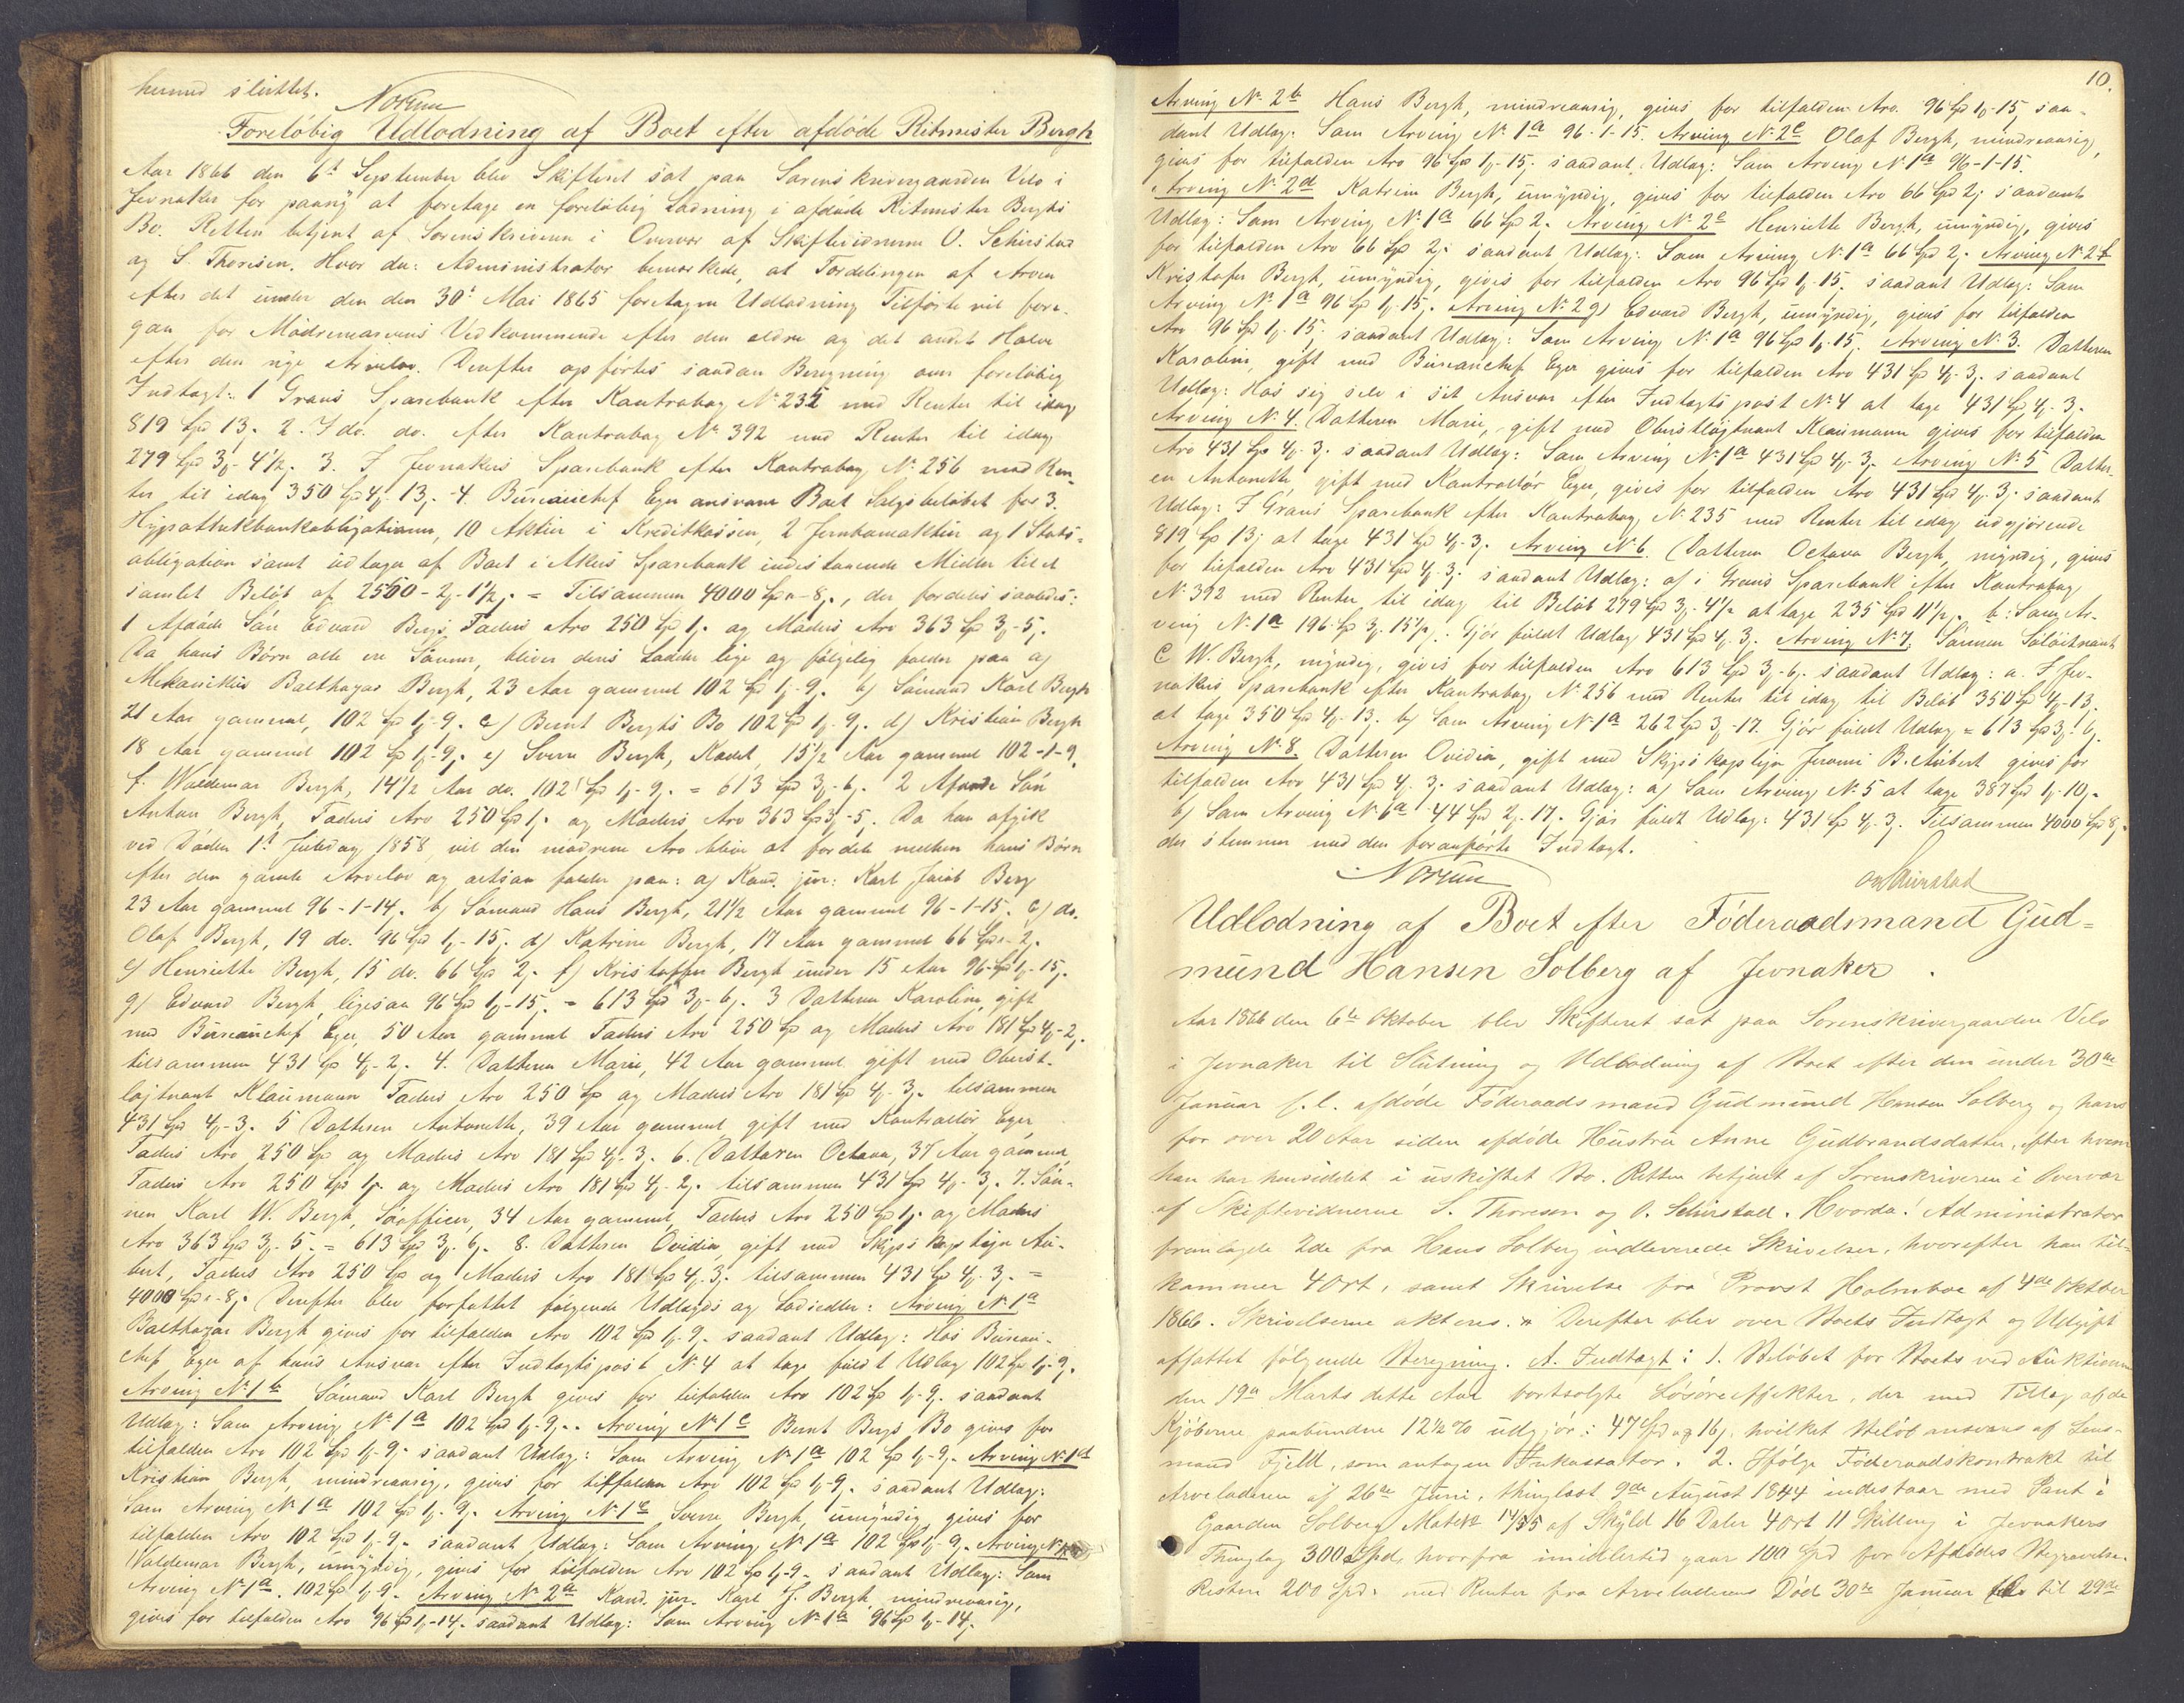 hermed sluttet.
Norum
Foreløbig Udlodning af Boet efter afdøde Ritmester Bergh
Aar 1866 den 6te September blev Skifteret sat paa Sorenskrivergaarden Velo i
Jevnaker for paany at foretage en foreløbig Lodning i afdøde Ritmester Berghs
Bo. Retten betjent af Sorenskriveren i Overvær af Skiftevidnerne O. Schirstad
og S. Thoresen. Hvor da: Administrator bemærkede, at Fordelingen af Arven
efter det under den den 30te Mai 1865 foretagne Udlodning Tilførte vil fore-
gaa for Mødrenearvens Vedkommende efter den ældre og det andet Halve
efter den nye Arvelov. Derefter opførtes saadan Beregning over foreløbig
Indtægt: 1 Grans Sparebank efter Kontrabog No 235 med Renter til idag
819 Spd 13ẞ. 2. I do. do. efter Kontrabog No 392 med Renter til idag
279 Spd 3ẞ-4½ẞ. 3. I Jevnakers Sparebank efter Kontrabog No 256 med Ren-
ter til idag 350 Spd 4ẞ-13ẞ. 4. Bureauchef Eger ansvarer Boet Salgsbeløbet for 3.
Hypothekbankobligationer, 10 Aktier i Kreditkassen, 2 Jernbaneaktier og 1 Stats-
obligation samt udtagen af Boet i Akers Sparebank indestaaende Midler til et
samlet Beløb af 2550-2ẞ-1½ẞ. = Tilsammen 4000 Spd-8ẞ., der fordeles saaledes:
1 Afdøde Søn Edvard Berg, Faders Arv 250 Spd 1ẞ. og Moders Arv 363 Spd 3ẞ-5ẞ.
Da hans Børn alle ere Sønner, bliver deres Lodder lige og følgelig falder paa a)
Mekanikus Balthazar Bergh, 23 Aar gammel 102 Spd 1ẞ-9. b) Sømand Karl Bergh
21 Aar gammel, 102 Spd 1ẞ-9. c) Bernt Berghs Bo 102 Spd 1ẞ-9. d) Kristian Bergh
18 Aar gammel 102 Spd 1ẞ-9. e) Sverre Bergh, Kadet, 15½ Aar gammel 102-1-9.
f. Waldemar Bergh, 14½ Aar do. 102 Spd 1ẞ-9ẞ. = 613 Spd 3ẞ-6ẞ. 2 Afdøde Søn
Anton Bergh, Faders Arv 250 Spd 1ẞ. og Moders Arv 363 Spd 3ẞ-5. Da han afgik
ved Døden 1ste Juledag 1858, vil den mødrene Arv blive at fordele mellem hans Børn
efter den gamle Arvelov og altsaa falder paa: a) Kand. jur: Karl Jakob Berg
23 Aar gammel 96-1-14. b) Sømand Hans Bergh, 21½ Aar gammel 96-1-15. c) do.
Olaf Bergh, 19 do. 96 Spd 1ẞ-15. d) Katrine Bergh, 17 Aar gammel 66 Spd-2ẞ.
e) Henriette Bergh, 15 do. 66 Spd 2ẞ. f) Kristoffer Bergh under 15 Aar 96 Spd 1ẞ-15.
g) Edvard Bergh, ligesaa 96 Spd 1ẞ-15ẞ. = 613 Spd 3ẞ-6ẞ. 3 Datteren Karoline, gift
med Bureauchef Eger, 50 Aar gammel Faders Arv 250 Spd og Moders Arv 181 Spd 4ẞ-2ẞ.
tilsammen 431 Spd 4ẞ-2ẞ. 4. Datteren Marie, 42 Aar gammel gift med Oberst-
løjtnant Klaumann Faders Arv 250 Spd og Moders Arv 181 Spd 4ẞ-3ẞ. tilsammen
431 Spd 4ẞ-3. 5 Datteren Antonette, 39 Aar gammel gift med Kontrollør Eger,
Faders Arv 250 Spd og Moders Arv 181 Spd 4ẞ-3. 6. Datteren Octava, 37 Aar gammel,
Faders Arv 250 Spd 1ẞ. og Moders Arv 181 Spd 4ẞ-2ẞ. tilsammen 431 Spd 4ẞ-3. 7. Søn-
nen Karl W. Bergh, Søofficer, 34 Aar gammel, Faders Arv 250 Spd 1ẞ. og Moders
Arv 363 Spd 3ẞ-5. = 613 Spd 3ẞ-6ẞ. 8. Datteren Ovidia, gift med Skipskapt. Au-
bert, Faders Arv 250 Spd og Moders Arv 181 Spd 4ẞ-3ẞ. tilsammen 431 Spd 4ẞ-3ẞ. =
4000 Spd-8ẞ. Derefter blev forfattet følgende Udlægs og Lodsedler: Arving No 1a
Balthazar Bergh gives for tilfalden Arv 102 Spd 1ẞ-9. saadant Udlæg: Hos Bureau-
chef Eger af hans Ansvar efter Indtægtspost No 4 at tage fuldt Udlæg 102 Spd 1ẞ-9.
Arving No 1b Sømand Karl Bergh gives for tilfalden Arv 102 Spd 1ẞ-9. saadant
Udlæg: Som Arving No 1a 102 Spd 1ẞ-9ẞ. Arving No 1c Bernt Bergs Bo gives for
tilfalden Arv 102 Spd 1ẞ-9. saadant Udlæg: Som Arving No 1a 102 Spd 1ẞ-9. Arving No 1d
Kristian Bergh, mindreaarig, gives for tilfalden Arv 102 Spd 1ẞ-9. saadant Udlæg:
Som Arving No 1a 102 Spd 1ẞ-9. Arving No 1e Sverre Bergh, umyndig, gives for
tilfalden Arv 102 Spd 1ẞ-9. saadant Udlæg: Som Arving No 1a 102 Spd 1ẞ-9. Arving No
Valdemar Bergh, umyndig, gives for tilfalden Arv 102 Spd 1ẞ-9. saadant Udlæg: Som
Arving No 1a. 102 Spd 1ẞ-9. Arving No 2a Kand. jur. Karl J. Bergh, mindreaarig,
gives for tilfalden Arv 96 Spd 1ẞ-14ẞ. saadant Udlæg: Som Arving No 1a 96 Spd 1ẞ-14.
10.
Arving No 2b Hans Bergh, mindreaarig, gives for tilfalden Arv. 96 Spd 1ẞ-15 saa-
dant Udlæg. Som Arving No 1a 96-1-15. Arving No 2c Olaf Bergh, mindreaarig,
gives for tilfalden Arv 96 Spd 1ẞ-15. saadant Udlæg: Som Arving No 1a 96-1-15.
Arving No 2d Katrine Bergh, umyndig, gives for tilfalden Arv 66 Spd 2ẞ saadant
Udlæg: Som Arving No 1a 66 Spd 2. Arving No 2e Henriette Bergh, umyndig, gives
for tilfalden Arv 66 Spd 2ẞ. saadant Udlæg: Som Arving No 1a 66 Spd 2ẞ. Arving No 2f
Kristofer Bergh, umyndig, gives for tilfalden Arv 96 Spd 1ẞ-15. saadant Udlæg: Som
Arving No 1a 96 Spd 1ẞ-15ẞ. Arving No 2g) Edvard Bergh, umyndig, gives for tilfalden
Arv 96 Spd 1ẞ-15. saadant Udlæg: Som Arving No 1a 96 Spd 1ẞ-15. Arving No 3. Datteren
Karoline, gift med Bureauchef Eger gives for tilfalden Arv 431 Spd 4ẞ-3ẞ. saadant
Udlæg: Hos sig selv i sit Ansvar efter Indtægtspost No 4 at tage 431 Spd 4ẞ-3.
Arving No 4. Datteren Marie, gift med Oberstløjtnant Klaumann gives for tilfalden
Arv 431 Spd 4ẞ-3. saadant Udlæg: Som Arving No 1a 431 Spd 4ẞ-3ẞ. Arving No 5 Datter-
en Antonette gift med Kontrollør Eger, gives for tilfalden Arv 431 Spd 4ẞ-3. saadant
Udlæg: I Grans Sparebank efter Kontrabog No 235 med Renter til idag udgjørende
819 Spd 13ẞ at tage 431 Spd 4ẞ-3ẞ. Arving No 6. Datteren Octava Bergh, myndig, gives
for tilfalden Arv 431 Spd 4ẞ-3ẞ. saadant Udlæg: a) i Grans Sparebank efter Kontrabog
No 392 med Renter til idag til Beløb 279 Spd 3ẞ-4½ at tage 235 Spd 11½. b: Som Ar-
ving No 1a 196 Spd 3ẞ-15½. Gjør fuldt Udlæg 431 Spd 4ẞ-3. Arving No 7. Sønnen Søløitnant
C W. Bergh, myndig, gives for tilfalden Arv 613 Spd 3ẞ-6ẞ. saadant Udlæg: a. I Jev-
nakers Sparebank efter Kontrabog No 256 med Renter til idag til Beløb 350 Spd 4ẞ-13.
at tage 350 Spd 4ẞ-13. b) Som Arving No 1a 262 Spd 3ẞ-17. Gjør fuldt Udlæg = 613 Spd 3ẞ-6.
Arving No 8. Datteren Ovidia, gift med Skipskaptein B. Aubert gives for
tilfalden Arv 431 Spd 4ẞ-3. saadant Udlæg: a) Som Arving No 5 at tage 387 Spd 1ẞ-10ẞ.
b) Som Arving No 6a 44 Spd 2ẞ-17. Gjør fuldt Udlæg: 431 Spd 4ẞ-3. Tilsammen 4000 Spd 8ẞ.
der stemmer med den foranførte Indtægt.
Norum O. Schirstad
Udlodning af Boet efter Føderaadsmand Gud=
mund Hansen Solberg af Jevnaker.
Aar 1866 den 6te Oktober blev Skifteret sat paa Sorenskrivergaarden Velo
i Jevnaker til Slutning og Udlodning af Boet efter den under 30te
Januar f.l. afdøde Føderaadsmand Gudmund Hansen Solberg og hans
for over 20 Aar siden afdøde Hustru Anne Gudbrandsdatter, efter hvem
han har henseddet i uskiftet Bo. Retten betjent af Sorenskriveren i Overvær
af Skiftevidnerne S. Thoresen og O. Schirstad. Hvorda! Administrator
fremlagde 2de fra Hans Solberg indleverede Skrivelser, hvorefter han til-
kommer 4 Ort, samt Skrivelse fra Provst Holmboe af 4de Oktber
1866. Skrivelserne akteres. Derefter blev over Boets Indtægt og Udgift
affattet følgende Beregning. A. Indtægt: 1. Beløbet for Boets ved Auktionen
den 19de Marts dette Aar bortsolgte Løsøreeffekter, der med Tillæg af de
Kjøberne paabundne 12½ % udgjør: 47 Spd og 16ẞ, hvilket Beløb ansvares af Lens-
mand Fjeld, som antagen Inkassator. 2. Ifølge Føderaadskontrakt til
Arveladeren af 26de Juni, thinglæst 9de August 1844 indestaar med Pant i
Gaarden Solberg Matr№ 14/55 af Skyld 16 Daler 4 Ort 11 Skilling i Jevnakers
Thinglag 300 Spd, hvorfra imidlertid gaar 100 Spd for Afdødes Begravelse.
Resten 200 Spd. med Renter fra Arveladerens Død 30te Januar til 29de